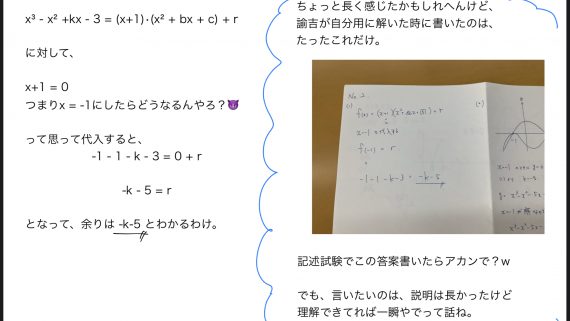 x³ - x² +kx - 3 = (x+1)·(x² + bx + c) + r
に対して、
x+1 = 0
つまりx = -1にしたらどうなるんやろ？😈
って思って代入すると、
-1 - 1 - k - 3 = 0 + r
-k - 5 = r
となって、余りは -k-5 とわかるわけ。
ちょっと長く感じたかもしれへんけど、
諭吉が自分用に解いた時に書いたのは、
たったこれだけ。
No. 2.
(1)
f(-1) = r
-1-1-k-3 = -k-5
記述試験でこの答案書いたらアカンで？w
でも、言いたいのは、説明は長かったけど
理解できてれば一瞬やでって話ね。